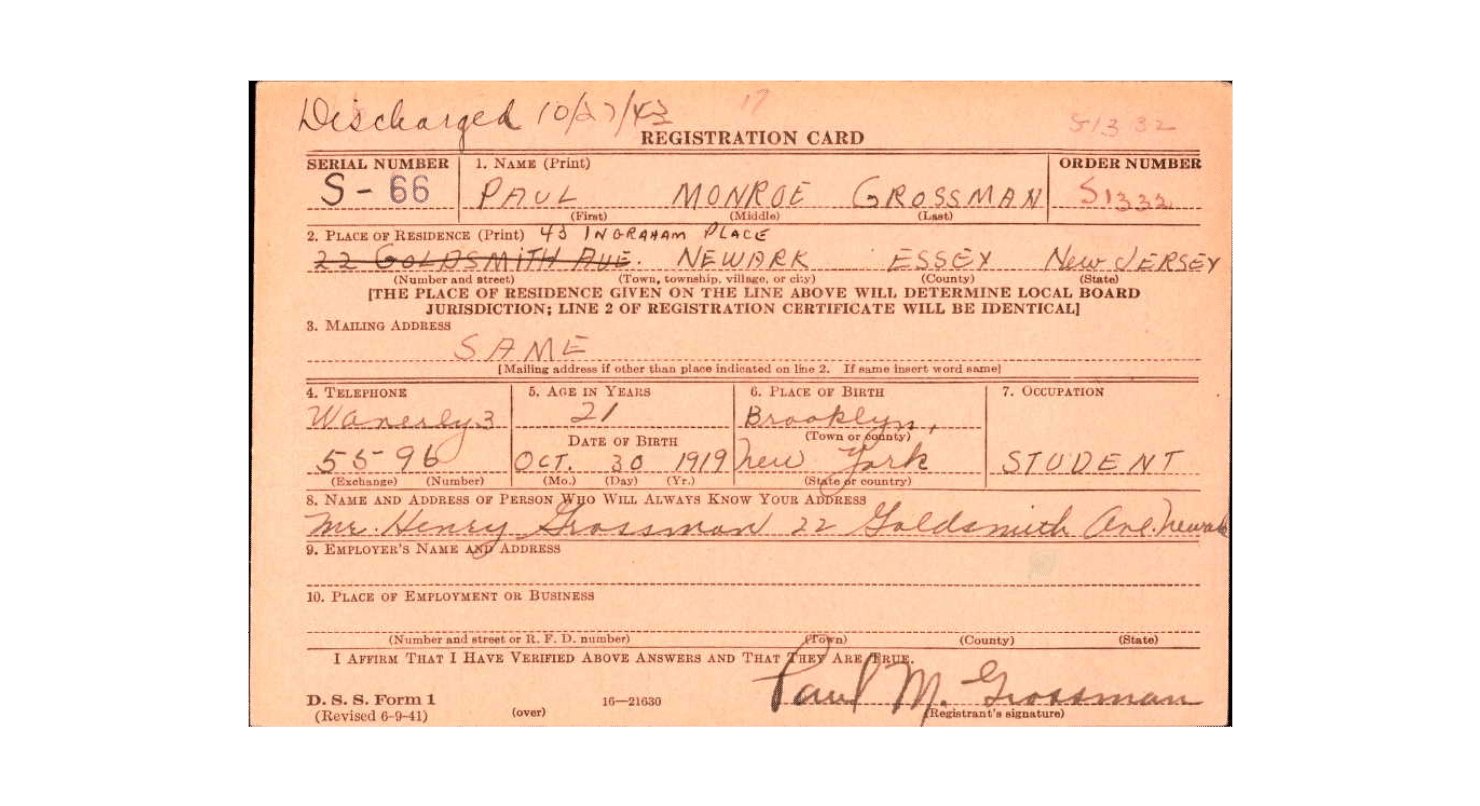 Discharged 10/27/43 17 S1332
REGISTRATION CARD
SERIAL NUMBER 1. NAME (Print) ORDER NUMBER
S-66 PAUL MONROE GROSSMAN S1332
(First) (Middle) (Last)
2. PLACE OF RESIDENCE (Print) 43 INGRAHAM PLACE
22 GOLDSMITH AVE. NEWARK ESSEX NEW JERSEY
(Number and street) (Town, township, village, or city) (County) (State)
[THE PLACE OF RESIDENCE GIVEN ON THE LINE ABOVE WILL DETERMINE LOCAL BOARD
JURISDICTION; LINE 2 OF REGISTRATION CERTIFICATE WILL BE IDENTICAL]
3. MAILING ADDRESS
SAME
[Mailing address if other than place indicated on line 2. If same insert word same]
4. TELEPHONE 5. AGE IN YEARS 6. PLACE OF BIRTH 7. OCCUPATION
Wanerly 3 21 Brooklyn,
DATE OF BIRTH (Town or county)
5596 OCT. 30 1919 New York STUDENT
(Exchange) (Number) (Mo.) (Day) (Yr.) (State or country)
8. NAME AND ADDRESS OF PERSON WHO WILL ALWAYS KNOW YOUR ADDRESS
Mr. Henry Grossman 22 Goldsmith Ave. Newark
9. EMPLOYER'S NAME AND ADDRESS
10. PLACE OF EMPLOYMENT OR BUSINESS
(Number and street or R. F. D. number) (Town) (County) (State)
I AFFIRM THAT I HAVE VERIFIED ABOVE ANSWERS AND THAT THEY ARE TRUE.
Paul M. Grossman
D. S. S. Form 1 16—21630
(Revised 6-9-41) (over) (Registrant's signature)